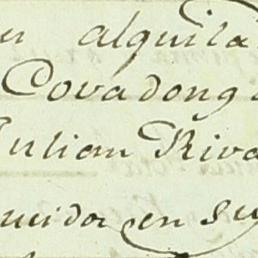 en alquila
Covadong
Julian Riva
quida en su